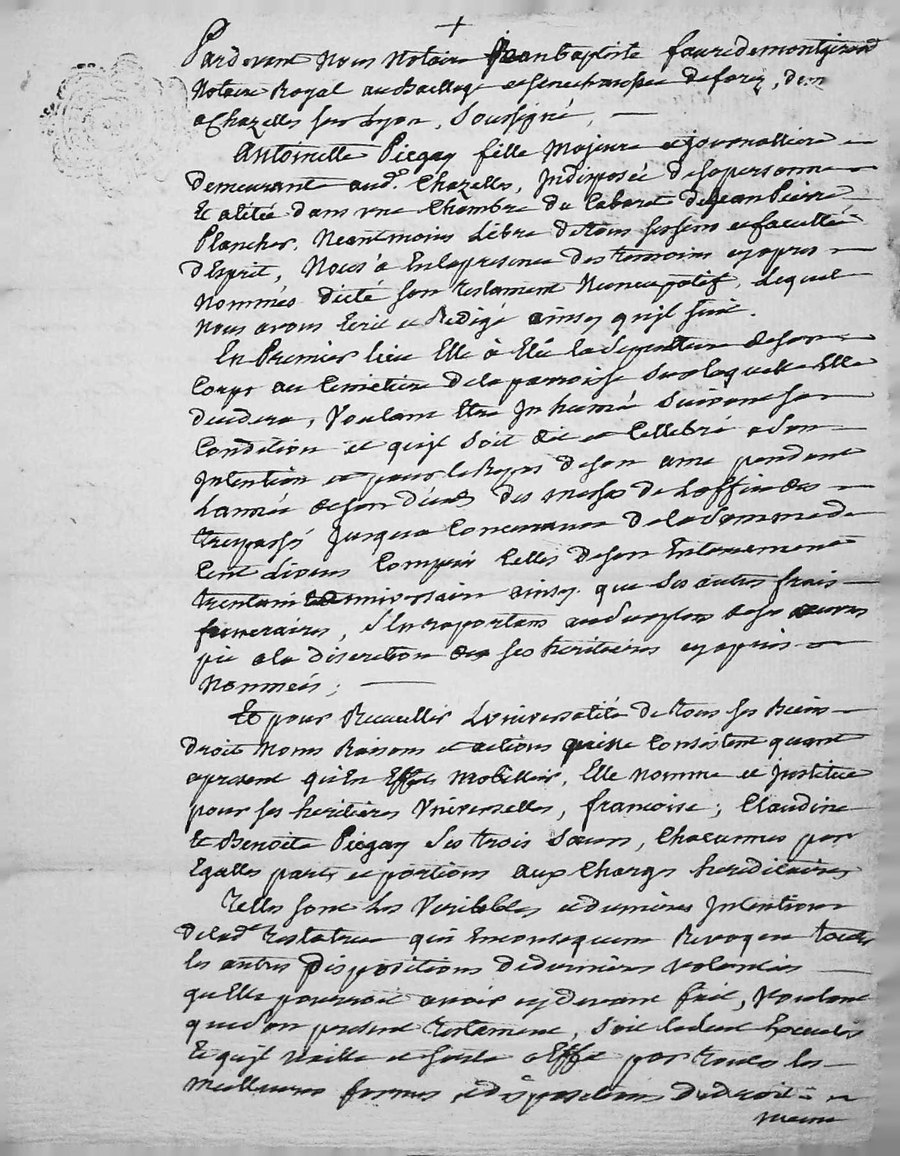 +
Pardevant Nous Notaire Jean baptiste faure de montgirod
Notaire Royal au Baillage et senechaussée de forez, dem
a Chazelles sur Lyon, Soussigné,
Antoinette Piegay fille Majeure et journalliere
demeurante aud.t Chazelles, Indisposée de sa personne
Et alitée dans une Chambre du Cabaret de Jean Pierre
Plancher. Neantmoins Libre de tous ses sens et faculté
d'Esprit, Nous à En la presence des temoins cy apres
Nommés dicté son testament Nuncupatif, Lequel
Nous avons Ecrit et Redigé ainsy qu'jl suit.
En Premier lieu Elle à Elû la sepulture de son
Corps au Cemetiere de la paroisse sur laquelle Elle
decedera, Voulant Etre Jnhumé suivant sa
Condition et qu'jl soit dit et Cellebré a son
Jntention et pour le Repos de son ame pendant
L'année de son décès des messes de L'office des
trepassés Jusqu'a Concurrance de la somme de
Cent livres Compris Celles de son Enterrement
trentain et anniversaire ainsy que ses autres frais
funeraires, s'En raportant au surplus de ses œuvres
pie a la discretion de ses heritieres cy apres
Nommeés;
Et pour Recueillir L'universalité de tous ses Biens
droit Noms Raisons et actions qui ne Consistent quant
apresent qu'En Effets Mobilliers, Elle nomme et jnstitue
pour ses heritieres Vniverselles, francoise; Claudine
Et Benoite Piegay ses trois sœurs, Chacunnes par
Egalles parts et portions aux Charges hereditaires
Telles sont Les Veritables et dernieres Jntentions
de lad.te testatrice qui En consequence Revoquen toutes
les autres dispositions de dernieres volontés
qu'Elle pourroit avoir cy devant fait, Voulant
que son present testament, soit le seul Executés
Et qu'jl vaille et sorte Effet par toutes les
meilleures formes et dispositions de droit
meme